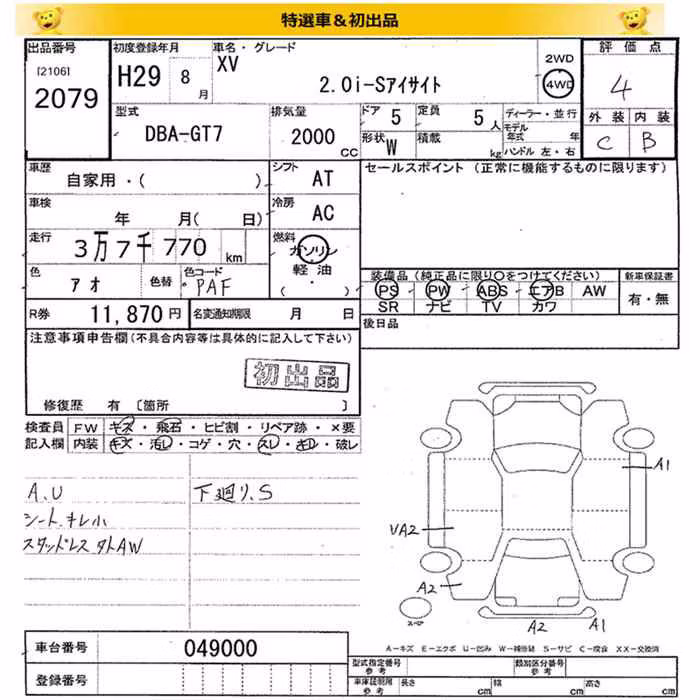 特選車＆初出品
出品番号
[2106]
2079
初度登録年月
H29 8月
車名・グレード
XV
2.0i-Sアイサイト
2WD
4WD
評価点
4
外装 内装
C B
型式
DBA-GT7
排気量
2000 CC
ドア 5
定員 5人
形状 W
積載 kg
ディーラー・並行
モデル年式 年
ハンドル 左・右
車歴
自家用・( )
シフト AT
セールスポイント (正常に機能するものに限ります)
車検
年 月(日)
冷房 AC
走行
3万7千770 km
燃料
ガソリン
軽油
( ・ )
色 アオ
色替
色コード PAF
装備品 (純正品に限り○をつけてください)
PS PW ABS エアB AW
SR ナビ TV カワ
新車保証書
有・無
R券 11,870円
名変通知期限 月 日
後日品
注意事項申告欄(不具合内容等は具体的に記入して下さい)
初出品
修復歴 有 〔箇所 〕
検査員記入欄
FW キズ・飛石・ヒビ割・リペア跡・×要
内装 キズ・汚レ・コゲ・穴・スレ・キレ・破レ
A.U
下廻り.S
シート.キレ小
スタッドレス 外AW
A1
UA2
A2
A2
A1
スペア
A-キズ E-エクボ U-凹み W-補修跡 S-サビ C-腐食 XX-交換済
車台番号 049000
登録番号
型式指定番号 参考
類別区分番号 参考
車庫証明用 参考
長さ cm
幅 cm
高さ cm